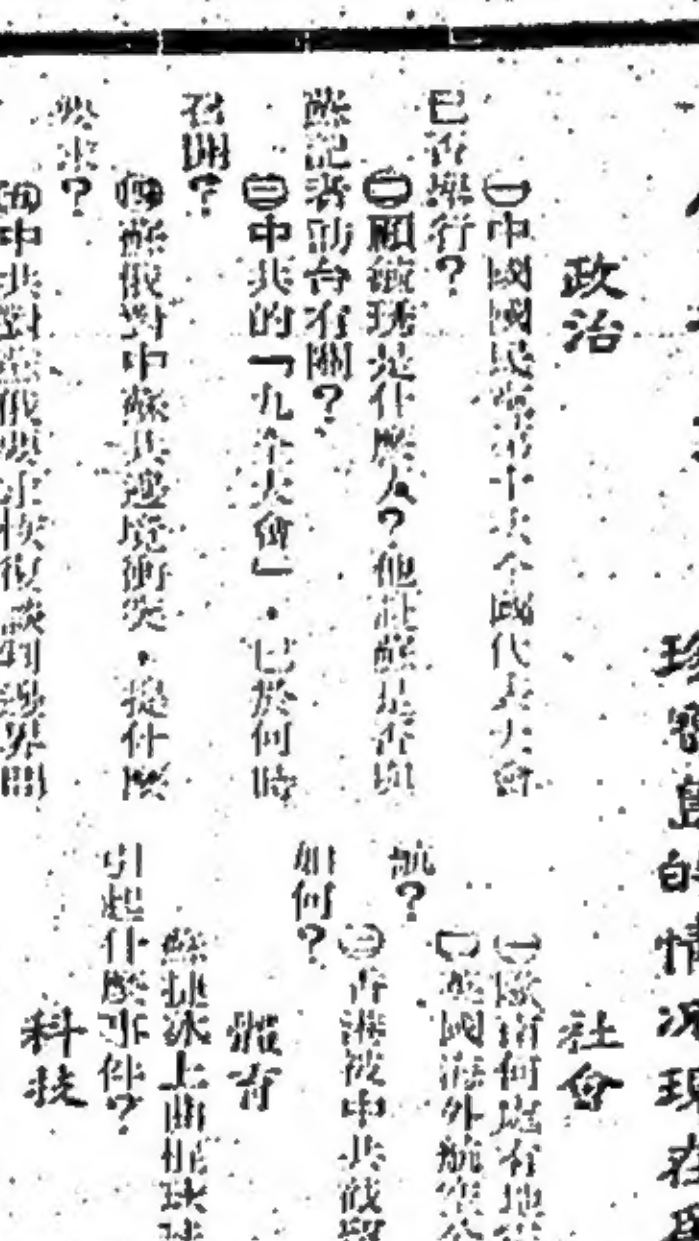 珍寶島的情況現在
政治
㊀中國國民黨第十次全國代表大會
已否舉行?
㊁顧毓琇是什麽人?他赴蘇是否與
蘇記者訪台有關?
㊂中共的「九全大會」,已於何時
召開?
㊃蘇俄對中蘇共邊境衝突,提什麽
要求?
㊄中共對蘇俄要求恢復談判邊界問
社會
㊀歐洲何處有地
㊁英國海外航空公
航?
㊂香港被中共
如何?
體育
蘇捷冰上曲棍球
引起什麽事件?
科技